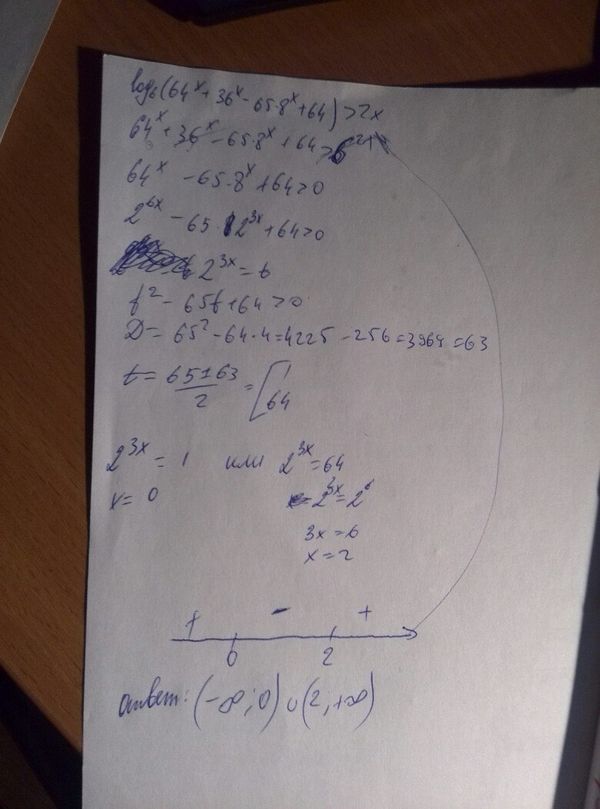 log₆(64ˣ+36ˣ-65·8ˣ+64)>2x
64ˣ+36ˣ-65·8ˣ+64>6²ˣ
64ˣ -65·8ˣ+64>0
2⁶ˣ-65·2³ˣ+64>0
2³ˣ=t
t²-65t+64>0
D=65²-64·4=4225-256=3969=63
t=65±63/2=[1 64
2³ˣ=1 или 2³ˣ=64
x=0 2³ˣ=2⁶
3x=6
x=2
+ - +
0 2
ответ: (-∞;0)∪(2,+∞)